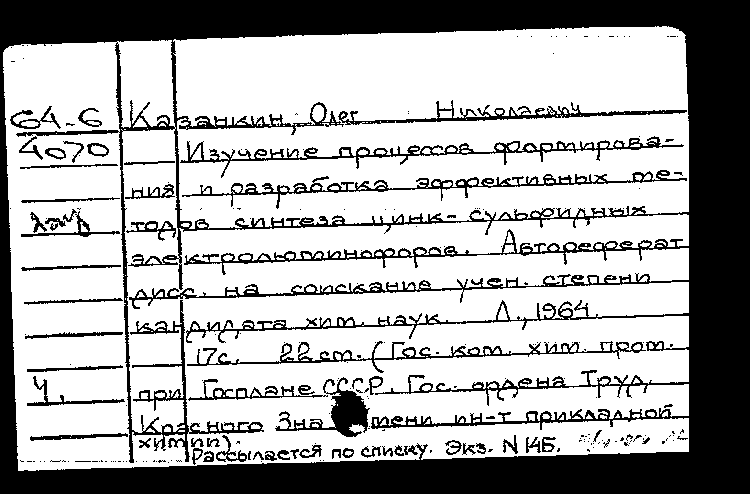 64-6 Казанкин, Олег Николаевич
4070 Изучение процессов формирова-
ния и разработка эффективных ме-
тодов синтеза цинк-сульфидных
электролюминофоров. Автореферат
дисс. на соискание учен. степени
кандидата хим. наук. Л., 1964.
17с. 22 см. (Гос. ком. хим. пром.
Ч. при Госплане СССР. Гос. ордена Труд.
Красного Знамени ин-т прикладной
химии).
Рассылается по списку. Экз. N 145.